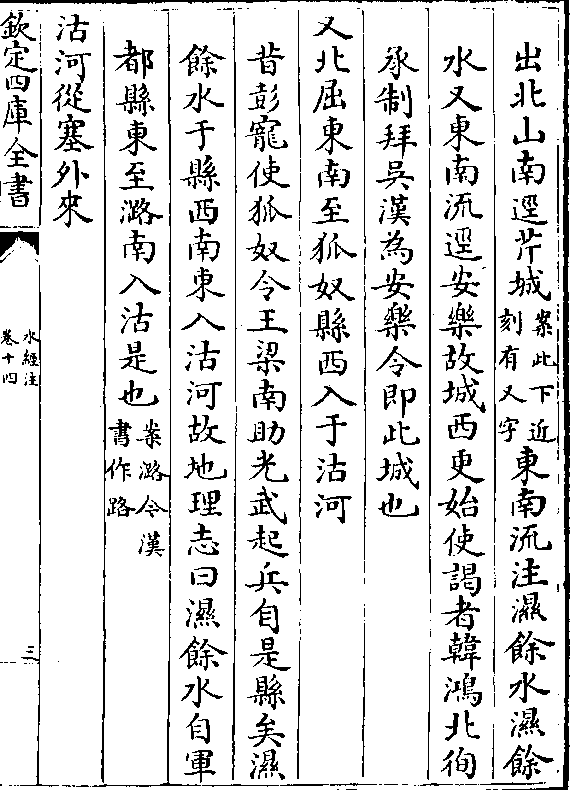 出北山南逕芹城案此下近刻有又字東南流注濕餘水濕餘
水又東南流逕安樂故城西更始使謁者韓鴻北徇
承制拜吳漢為安樂令即此城也
又北屈東南至狐奴縣西入于沽河
昔彭寵使狐奴令王梁南助光武起兵自是縣矣濕
餘水于縣西南東入沽河故地理志曰濕餘水自軍
都縣東至潞南入沽是也案潞今漢書作路
沽河從塞外來
欽定四庫全書
水經注
卷十四
三